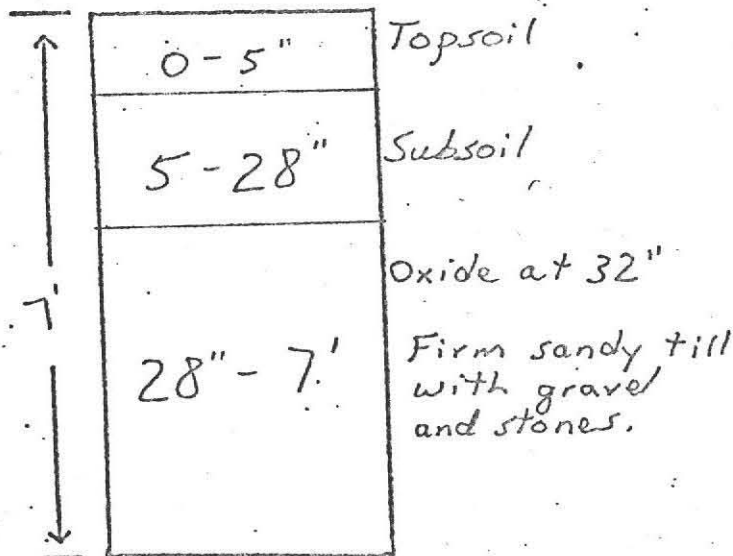 0-5" Topsoil
5-28" Subsoil
Oxide at 32"
7'
28"- 7' Firm sandy till
with gravel
and stones.